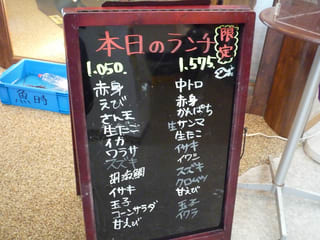 本日のランチ
限定
1,050.
赤身
えび
さん王
生だこ
イカ
ワラサ
スズキ
胡麻鯛
イサキ
玉子
コーンサラダ
甘えび
1,575.
中トロ
赤身
かんぱち
生サンマ
生だこ
イサキ
イワシ
スズキ
クロムツ
甘えび
玉子
イクラ
魚時